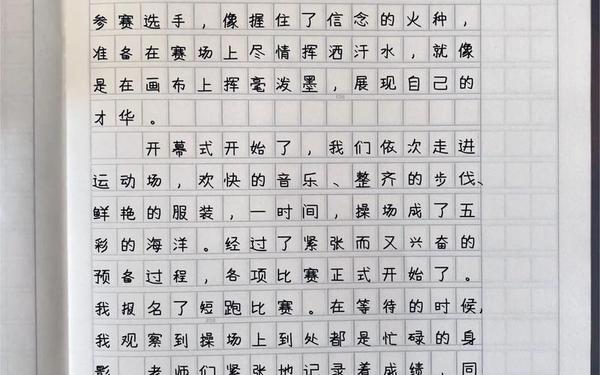 参赛选手，像握住了信念的火种，
准备在赛场上尽情挥洒汗水，就像
是在画布上挥毫泼墨，展现自己的
才华。
开幕式开始了，我们依次走进
运动场，欢快的音乐、整齐的步伐、
鲜艳的服装，一时间，操场成了五
彩的海洋。经过了紧张而又兴奋的
预备过程，各项比赛正式开始了。
我报名了短跑比赛。在等待的时候，
我观察到操场上到处都是忙碌的身
影，老师们紧张地记录着成绩，同